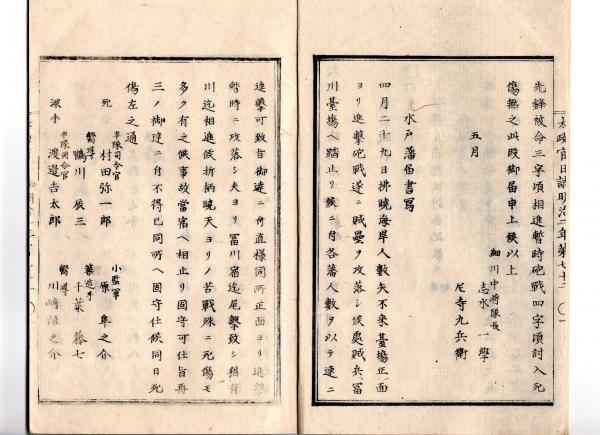 太政官日誌明治二年第七十二
先鋒被命三字頃相進暫時砲戰四字頃討入死
傷無之此段御届申上候以上
五月
細川中将隊長
志水一學
尼寺九兵衛
水戸藩届書寫
四月二十九日拂曉海岸人數矢不来臺場正面
ヨリ進撃砲戰遂ニ賊壘ヲ攻落シ候處賊兵冨
川臺場ヘ踏止リ候ニ付各藩人數ヲ以テ速ニ
進撃可致旨御達ニ付直様同所正面ヨリ進撃
暫時ニ攻落シ夫ヨリ冨川宿迄尾撃致シ猶有
川迄相進候折柄曉天ヨリノ苦戰殊ニ死傷モ
多ク有之候事故當宿ヘ相止リ固守可仕旨再
三ノ御達ニ付不得已同所ヘ固守仕候同日死
傷左之通
死
半隊司令官
村田弥一郎
嚮導
鴨川辰三
小監軍
原隼之介
築造手
千葉藤七
深手
半隊司令官
渡邉𠮷太郎
嚮導
川﨑
之介